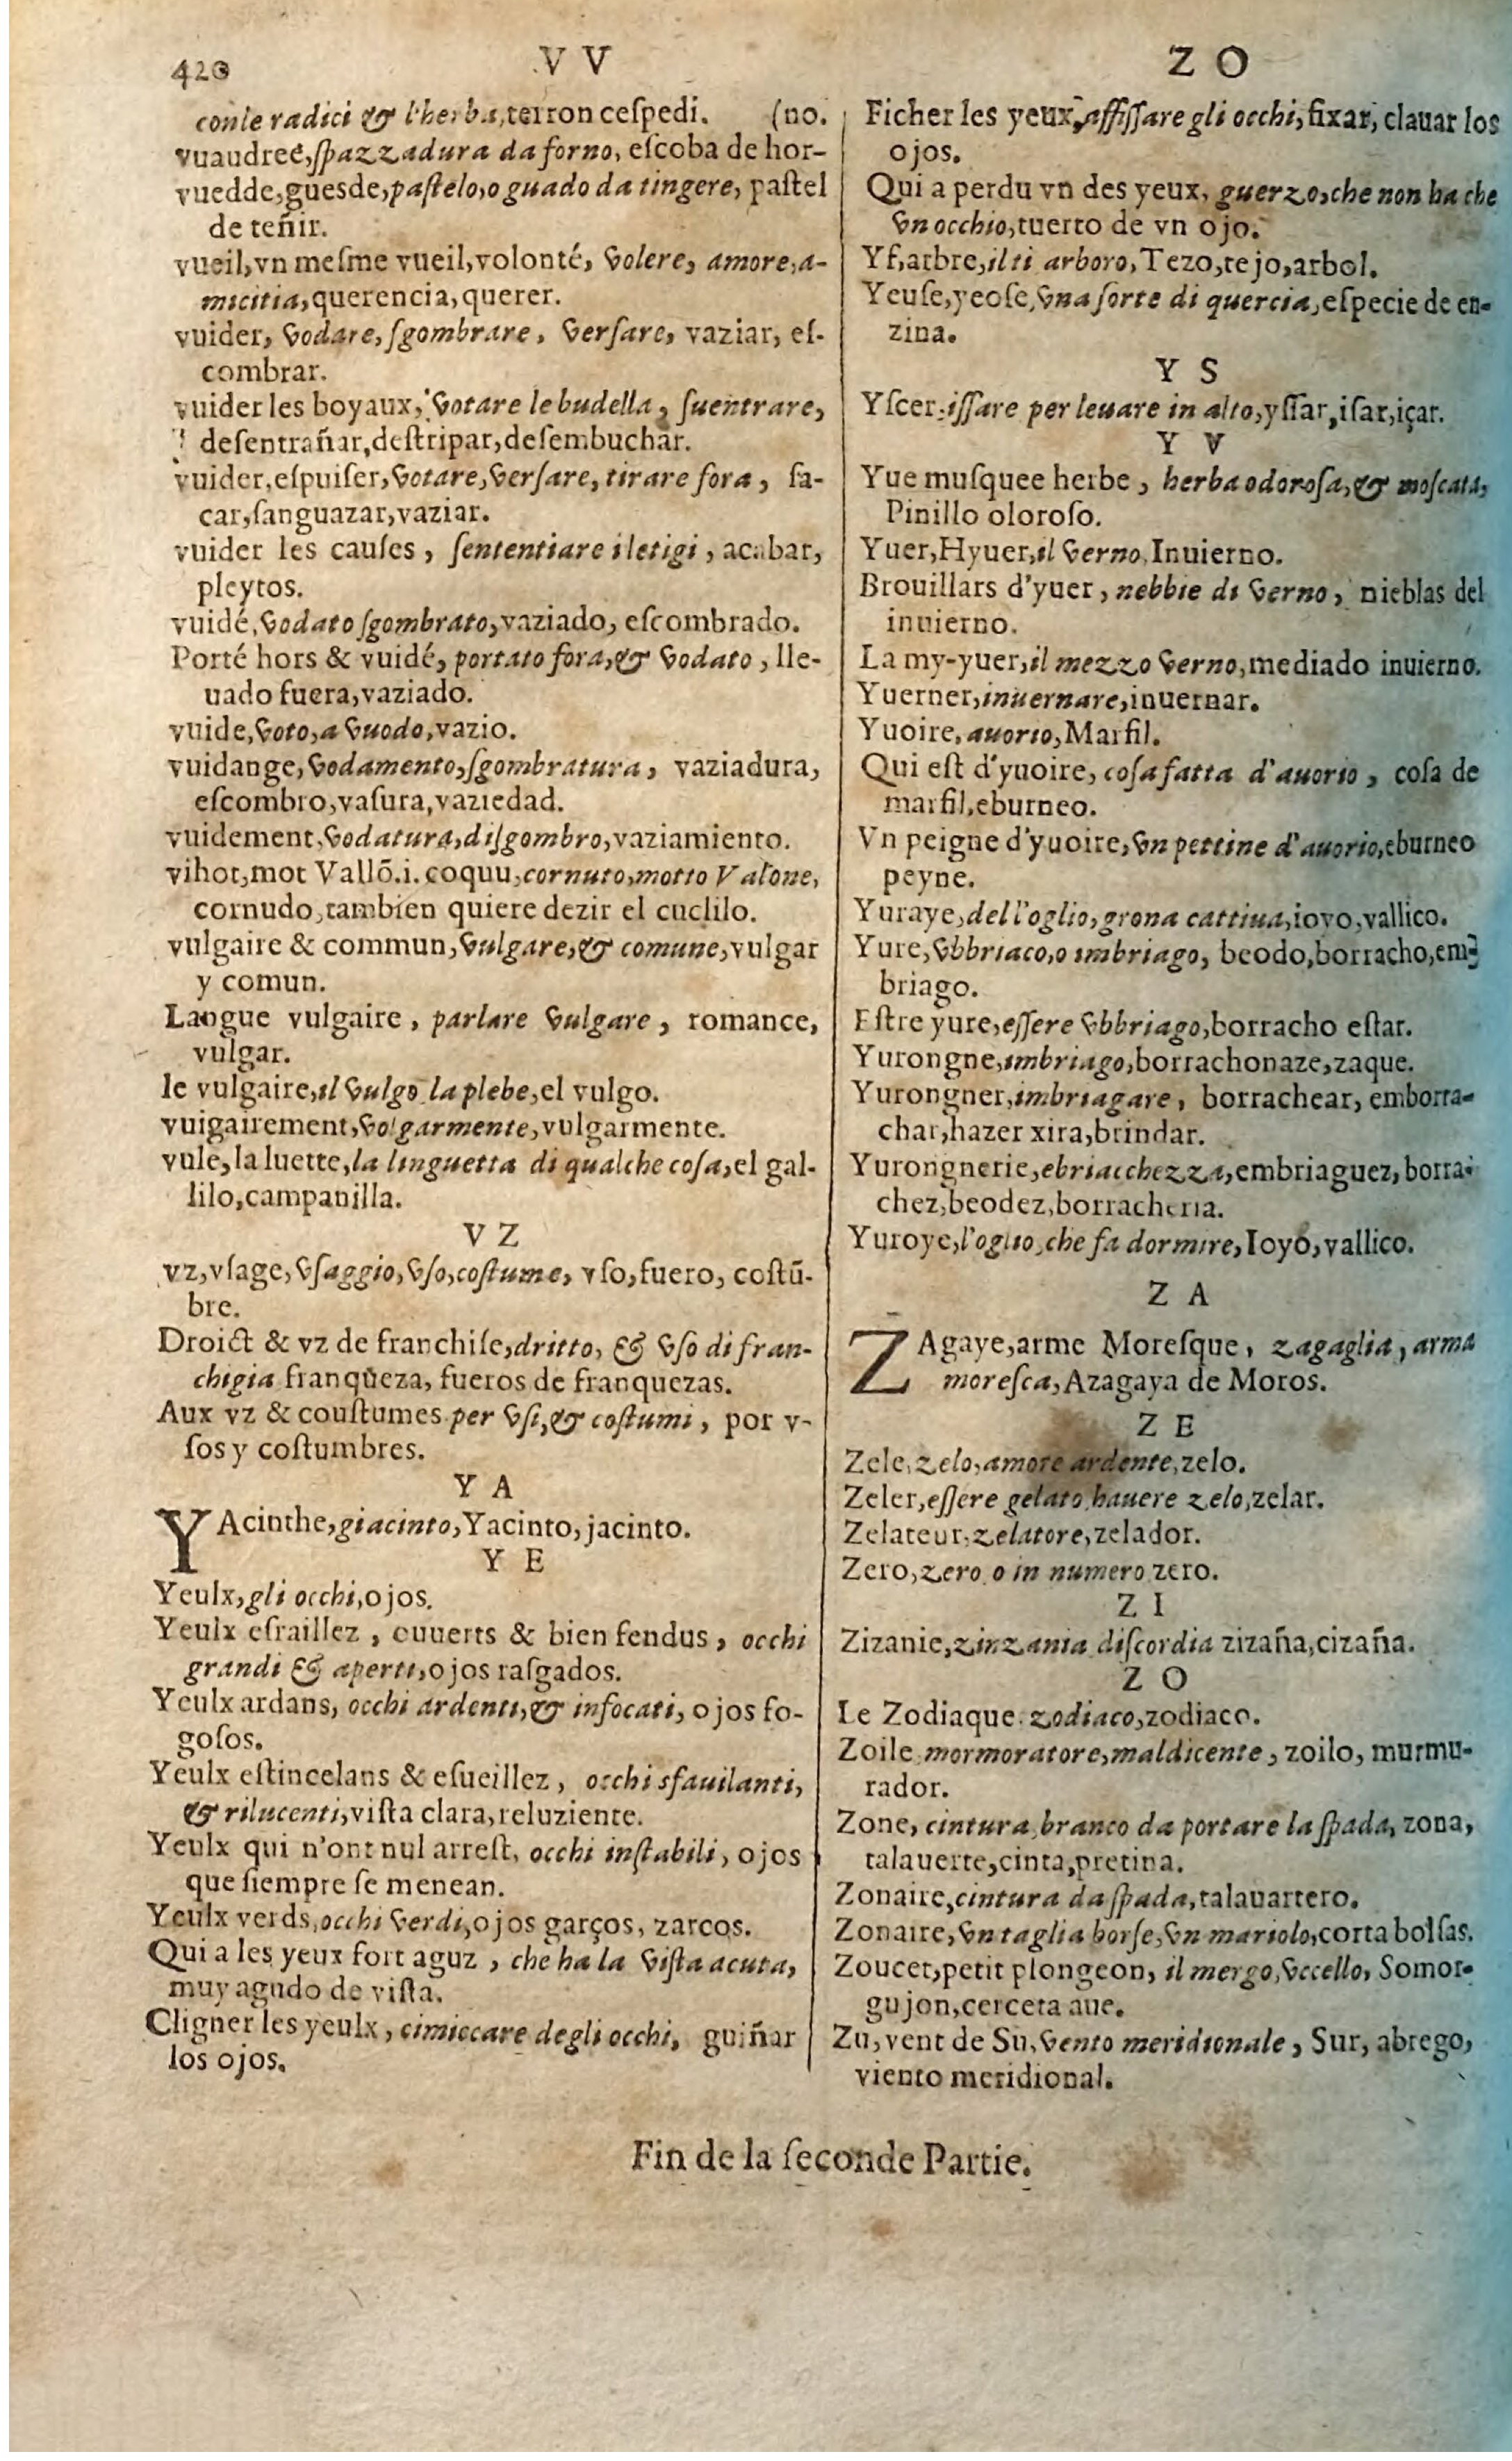 420
V V
Z O
conle radici & l'herba, terron ceſpedi. (no.
vuaudreé, ſpazzadura da forno, eſcoba de hor-
vuedde, gueſde, paſtelo, o guado da tingere, paſtel
de teñir.
vueil, vn meſme vueil, volonté, volere, amore, a-
micitia, querencia, querer.
vuider, vodare, ſgombrare, verſare, vaziar, eſ-
combrar.
vuider les boyaux, votare le budella, ſuentrare,
deſentrañar, deſtripar, deſembuchar.
vuider, eſpuiſer, votare, verſare, tirare fora, ſa-
car, ſanguazar, vaziar.
vuider les cauſes, ſententiare i letigi, acabar,
pleytos.
vuidé, vodato ſgombrato, vaziado, eſcombrado.
Porté hors & vuidé, portato fora, & vodato, lle-
uado fuera, vaziado.
vuide, voto, a vuodo, vazio.
vuidange, vodamento, ſgombratura, vaziadura,
eſcombro, vaſura, vaziedad.
vuidement, vodatura, diſgombro, vaziamiento.
vihot, mot Vallõ. i. coquu, cornuto, motto Valone,
cornudo, tambien quiere dezir el cuclilo.
vulgaire & commun, vulgare, & comune, vulgar
y comun.
Langue vulgaire, parlare vulgare, romance,
vulgar.
le vulgaire, il vulgo la plebe, el vulgo.
vuigairement, volgarmente, vulgarmente.
vule, la luette, la linguetta di qualche coſa, el gal-
lilo, campanilla.
V Z
vz, vſage, vſaggio, vſo, coſtume, vſo, fuero, coſtũ-
bre.
Droict & vz de franchiſe, dritto, & vſo di fran-
chigia franqũeza, fueros de franquezas.
Aux vz & couſtumes per vſi, & coſtumi, por v-
ſos y coſtumbres.
Y A
YAcinthe, giacinto, Yacinto, jacinto.
Y E
Yeulx, gli occhi, ojos.
Yeulx eſraillez, ouuerts & bien fendus, occhi
grandi & aperti, ojos raſgados.
Yeulx ardans, occhi ardenti, & infocati, ojos fo-
goſos.
Yeulx eſtincelans & eſueillez, occhi sfauilanti,
& rilucenti, viſta clara, reluziente.
Yeulx qui n'ont nul arreſt, occhi inſtabili, ojos
que ſiempre ſe menean.
Yeulx verds, occhi verdi, ojos garços, zarcos.
Qui a les yeux fort aguz, che ha la viſta acuta,
muy agudo de viſta.
Cligner les yeulx, cimiccare degli occhi, guiñar
los ojos.
Ficher les yeux, affiſſare gli occhi, fixar, clauar los
ojos.
Qui a perdu vn des yeux, guerzo, che non ha che
vn occhio, tuerto de vn ojo.
Yf, arbre, il ti arboro, Tezo, tejo, arbol.
Yeuſe, yeoſe, vna ſorte di quercia, eſpecie de en-
zina.
Y S
Yſcer, iſſare per leuare in alto, yſſar, iſar, içar.
Y V
Yue muſquee herbe, herba odoroſa, & moſcata,
Pinillo oloroſo.
Yuer, Hyuer, il verno, Inuierno.
Brouillars d'yuer, nebbie di verno, nieblas del
inuierno.
La my-yuer, il mezzo verno, mediado inuierno.
Yuerner, inuernare, inuernar.
Yuoire, auorio, Marfil.
Qui eſt d'yuoire, coſa fatta d'auorio, coſa de
marfil, eburneo.
Vn peigne d'yuoire, vn pettine d'auorio, eburneo
peyne.
Yuraye, dell'oglio, grona cattiua, ioyo, vallico.
Yure, vbbriaco, o imbriago, beodo, borracho, em-
briago.
Eſtre yure, eſſere vbbriago, borracho eſtar.
Yurongne, imbriago, borrachonaze, zaque.
Yurongner, imbriagare, borrachear, emborra-
char, hazer xira, brindar.
Yurongnerie, ebriacchezza, embriaguez, borra-
chez, beodez, borracheria.
Yuroye, l'oglio, che fa dormire, Ioyo, vallico.
Z A
ZAgaye, arme Moreſque, zagaglia, arma
moreſca, Azagaya de Moros.
Z E
Zele, zelo, amore ardente, zelo.
Zeler, eſſere gelato, hauere zelo, zelar.
Zelateur, zelatore, zelador.
Zero, zero o in numero zero.
Z I
Zizanie, zinzania diſcordia zizaña, cizaña.
Z O
Le Zodiaque zodiaco, zodiaco.
Zoile mormoratore, maldicente, zoilo, murmu-
rador.
Zone, cintura, branco da portare la ſpada, zona,
talauerte, cinta, pretina.
Zonaire, cintura da ſpada, talauartero.
Zonaire, vn taglia borſe, vn mariolo, corta bolſas.
Zoucet, petit plongeon, il mergo, vccello, Somor-
gujon, cerceta aue.
Zu, vent de Su, vento meridionale, Sur, abrego,
viento meridional.
Fin de la ſeconde Partie.